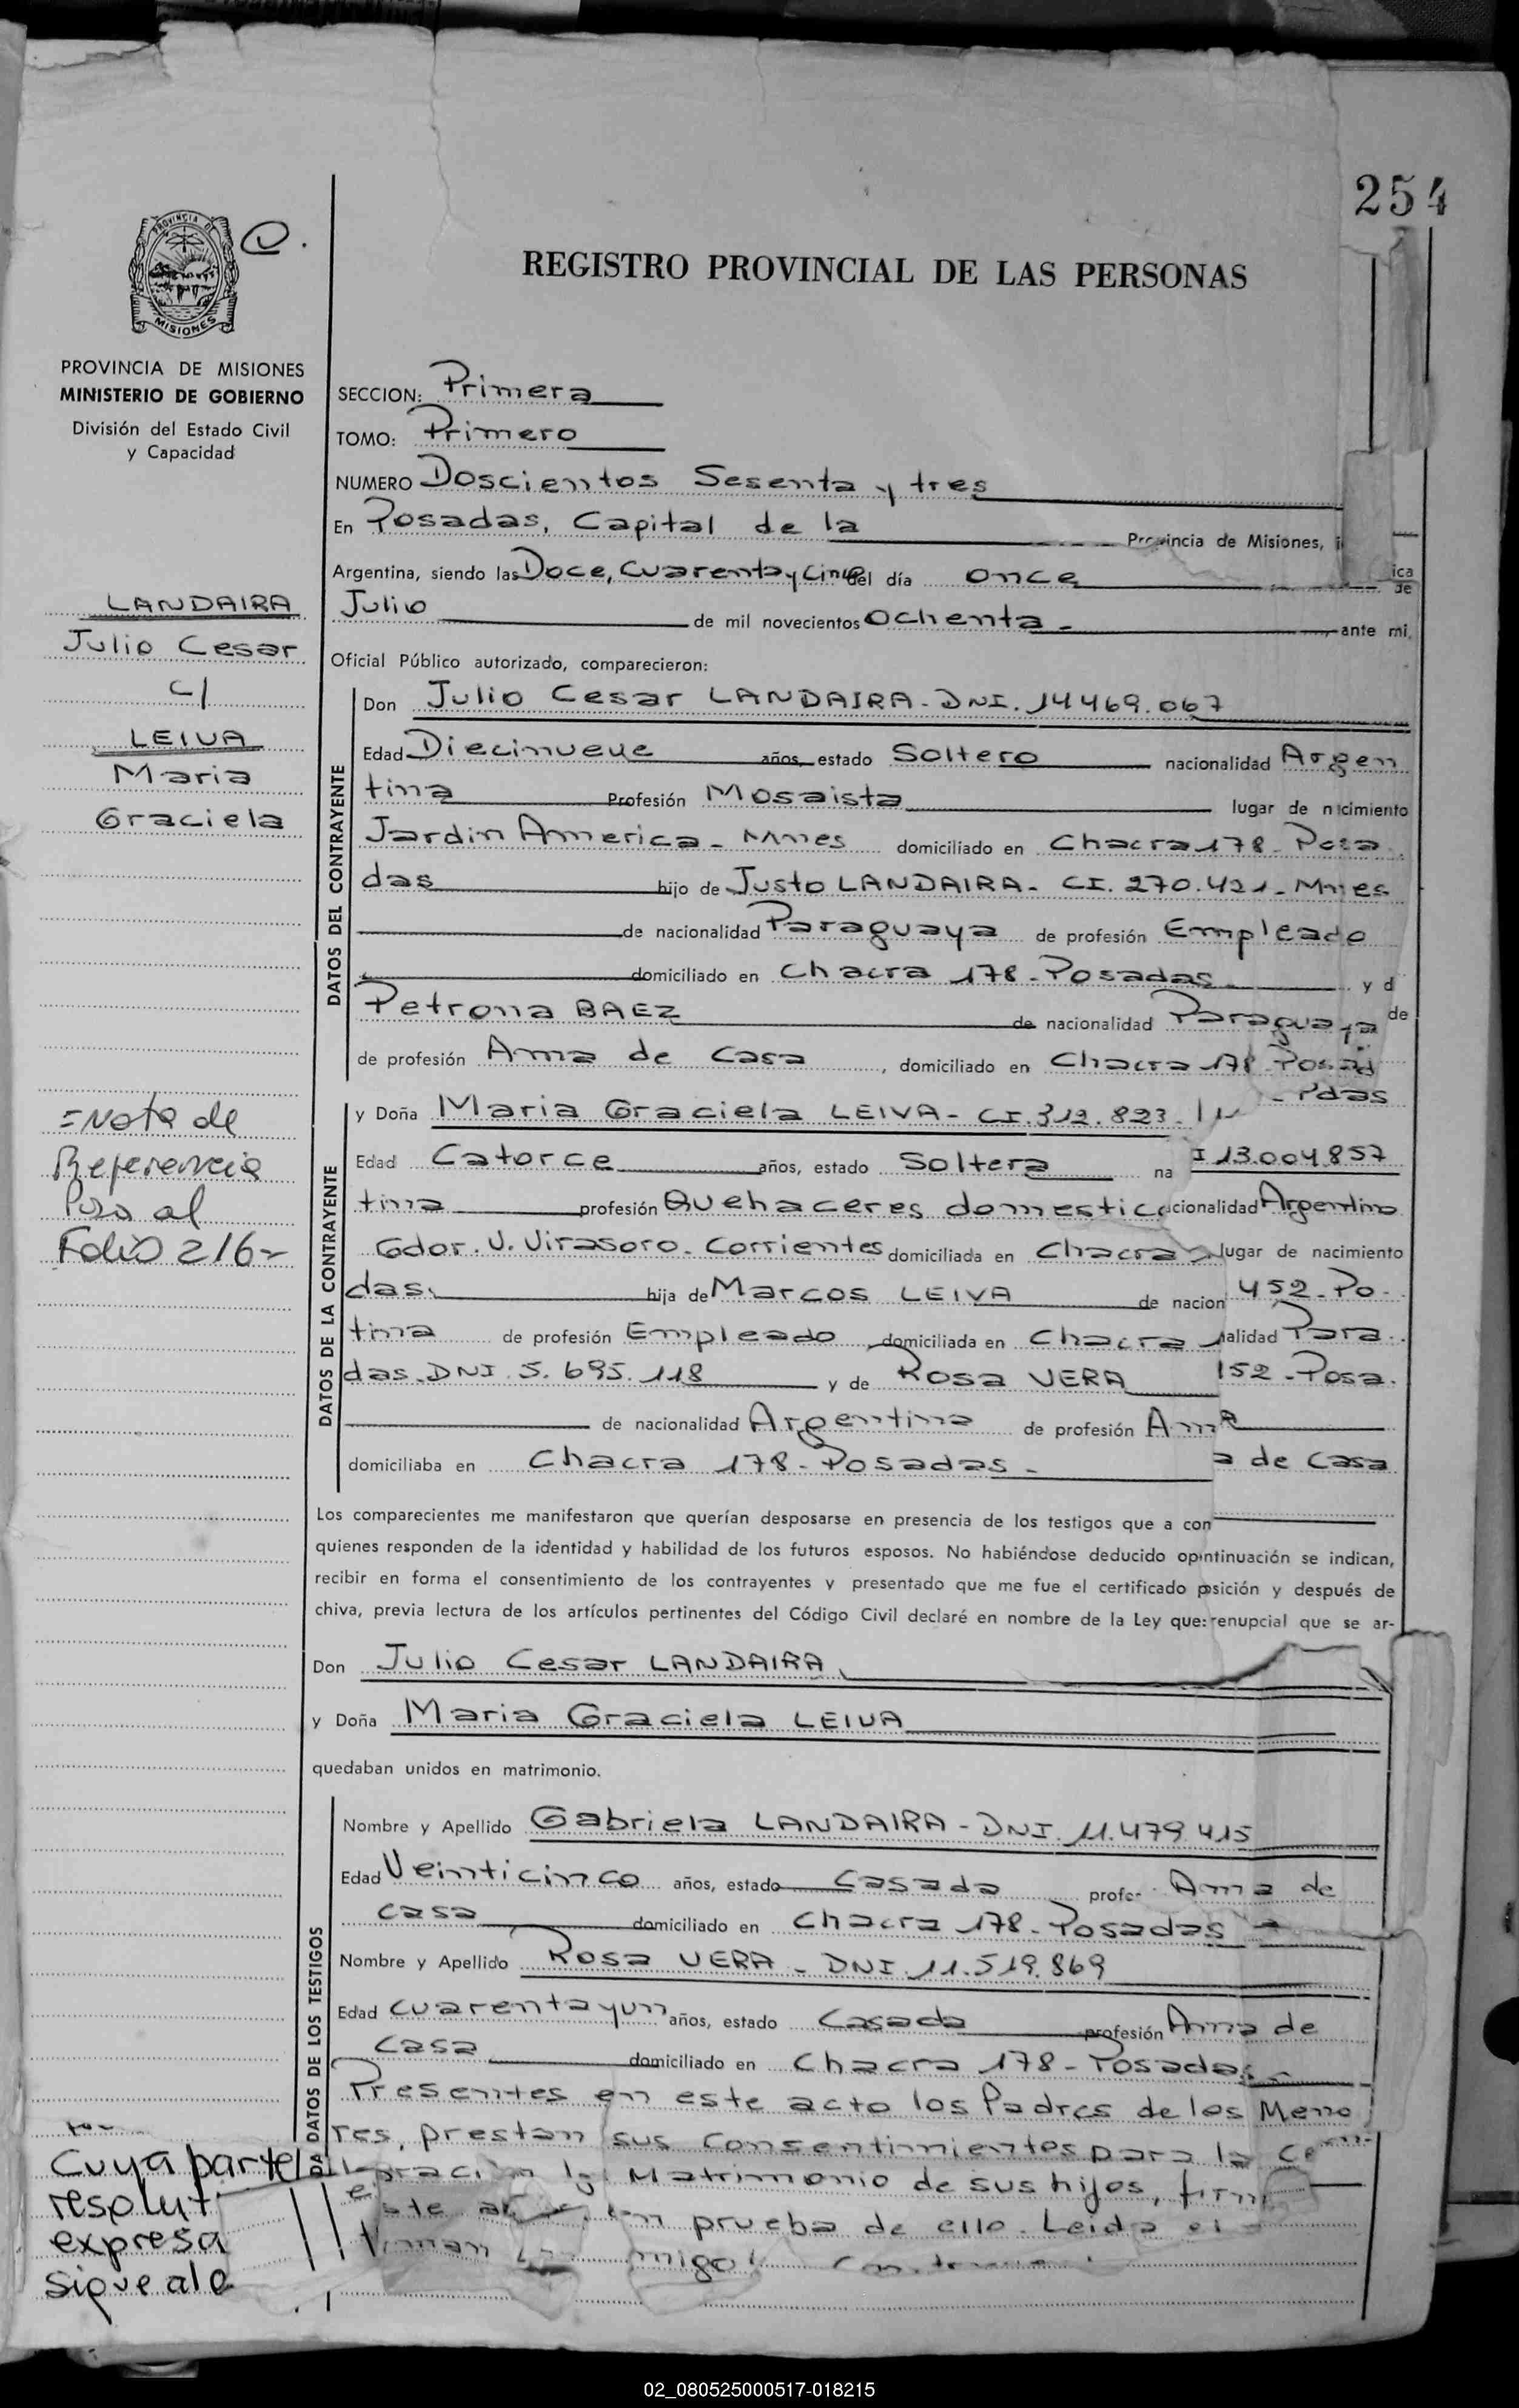 254
PROVINCIA DE
MISIONES
REGISTRO PROVINCIAL DE LAS PERSONAS
PROVINCIA DE MISIONES
MINISTERIO DE GOBIERNO
División del Estado Civil
y Capacidad
SECCION: Primera
TOMO: Primero
NUMERO Doscientos Sesenta y tres
En Posadas, Capital de la Provincia de Misiones,
ica
Argentina, siendo las Doce, Cuarenta y Cinco del día once de
Julio de mil novecientos Ochenta - ante mi,
Oficial Público autorizado, comparecieron:
LANDAIRA
Julio Cesar
c/
LEIVA
Maria
Graciela
DATOS DEL CONTRAYENTE
Don Julio Cesar LANDAIRA - DNI. 14469.067
Edad Diecinueve años, estado Soltero nacionalidad Argen
tina Profesión Mosaista lugar de nacimiento
Jardin America - Mnes domiciliado en Chacra 178 - Posa
das hijo de Justo LANDAIRA - CI. 270.421 - Mnes
de nacionalidad Paraguaya de profesión Empleado
domiciliado en Chacra 178 - Posadas y d
de
Petrona BAEZ de nacionalidad Paraguaya
de profesión Ama de Casa, domiciliado en Chacra 178 Posad
=Nota de
Referencia
Pasa al
Folio 216-
DATOS DE LA CONTRAYENTE
y Doña Maria Graciela LEIVA - CI. 312.823.
I 13.004857
Edad Catorce años, estado Soltera na
tina profesión Quehaceres domestic cionalidad Argentina
Gdor. V. Virasoro. Corrientes domiciliada en Chacra lugar de nacimiento
das. hija de Marcos LEIVA de nacion 452 - Po -
tina de profesión Empleado domiciliada en Chacra alidad Para
das. DNI 5.695.118 y de Rosa VERA 152 - Posa.
de nacionalidad Argentina de profesión Am
domiciliaba en Chacra 178 - Posadas - a de Casa
Los comparecientes me manifestaron que querían desposarse en presencia de los testigos que a con
quienes responden de la identidad y habilidad de los futuros esposos. No habiéndose deducido op ntinuación se indican,
recibir en forma el consentimiento de los contrayentes y presentado que me fue el certificado p sición y después de
chiva, previa lectura de los artículos pertinentes del Código Civil declaré en nombre de la Ley que: renupcial que se ar-
Don Julio Cesar LANDAIRA
y Doña Maria Graciela LEIVA
quedaban unidos en matrimonio.
DATOS DE LOS TESTIGOS
Nombre y Apellido Gabriela LANDAIRA - DNI. 11.479.415
Edad Veinticinco años, estado Casada profe- Ama de
casa domiciliado en Chacra 178 - Posadas
Nombre y Apellido Rosa VERA - DNI. 11.519.869
Edad cuarenta y un años, estado Casada profesión Ama de
casa domiciliado en Chacra 178 - Posadas
Presentes en este acto los Padres de los Meno
res, prestan sus Consentimientos para la ce
Matrimonio de sus hijos,
prueba de ello. Leida
Cuya parte
resolut
expresa
sigue al
02_080525000517-018215